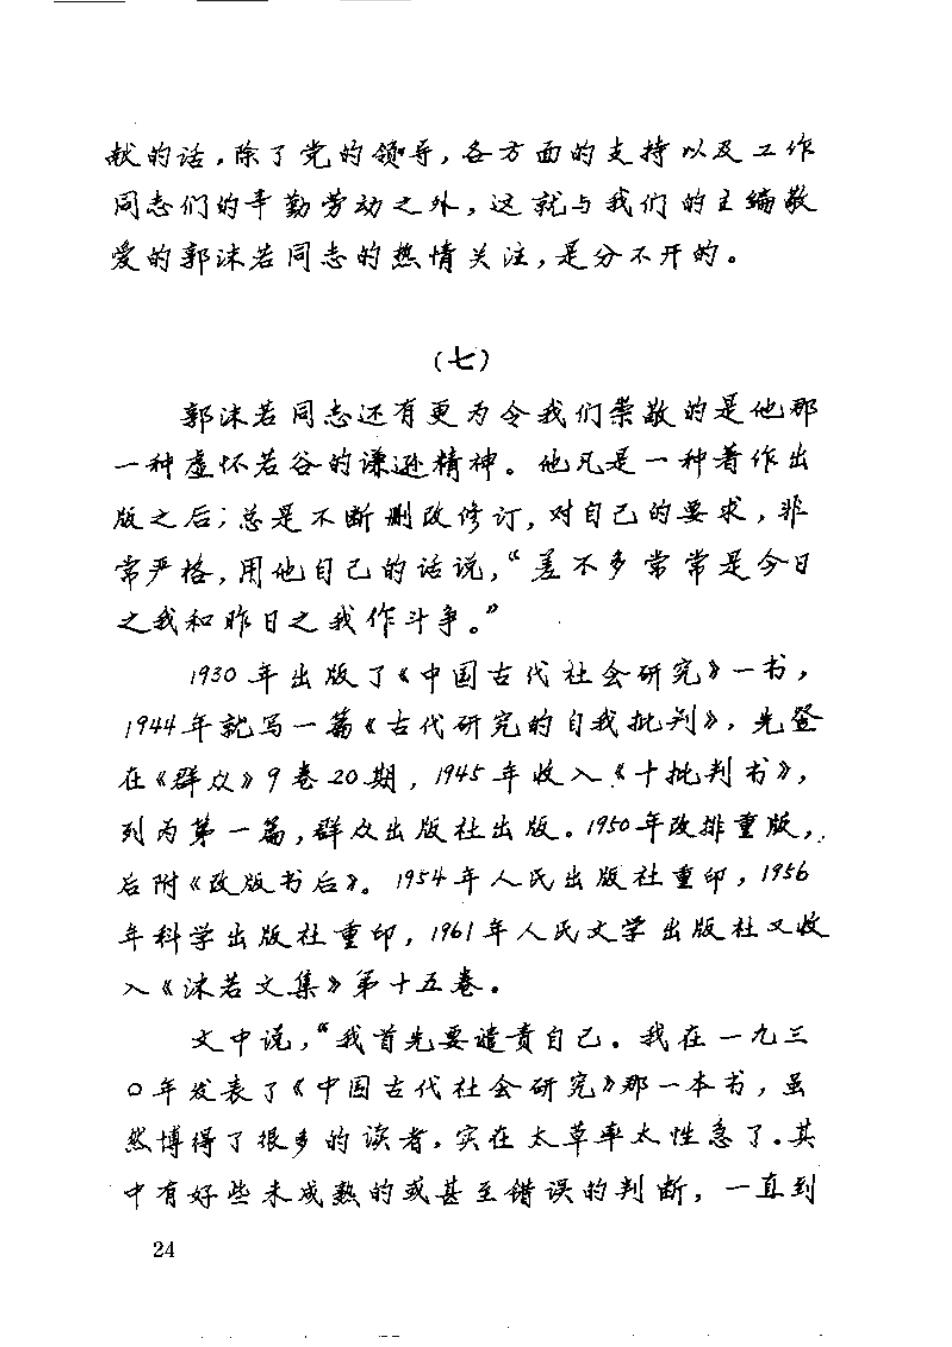 献的话，除了党的领导，各方面的支持以及工作
同志们的辛勤劳动之外，这就与我们的主编敬
爱的郭沫若同志的热情关注，是分不开的。
（七）
郭沫若同志还有更为令我们崇敬的是他那
一种虚怀若谷的谦逊精神。他凡是一种著作出
版之后；总是不断删改修订，对自己的要求，非
常严格，用他自己的话说，“差不多常常是今日
之我和昨日之我作斗争。”
1930年出版了《中国古代社会研究》一书，
1944年就写一篇《古代研究的自我批判》，先登
在《群众》9卷20期，1945年收入《十批判书》，
列为第一篇，群众出版社出版。1950年改排重版，
后附《改版书后》。1954年人民出版社重印，1956
年科学出版社重印，1961年人民文学出版社又收
入《沫若文集》第十五卷。
文中说，“我首先要谴责自己。我在一九三
〇年发表了《中国古代社会研究》那一本书，虽
然博得了很多的读者，实在太草率太性急了。其
中有好些未成熟的或甚至错误的判断，一直到
24